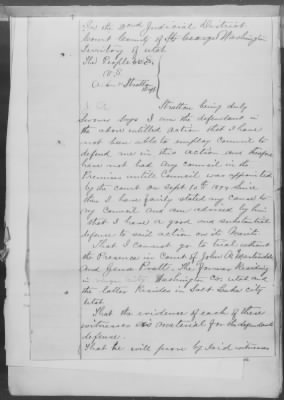 In the 2nd Judicial District
Court County of St George Washington
Territory of Utah
The People &c.
vs.
Stratton
Stratton being duly
Sworn Says I am the defendant in
the above entitled action that I have
not been able to employ council to
defend me in this action and therefore
have not had any council in the
Premises untill Council was appointed
by the court on Sept 10th 1879 Since
then I have fairly stated my cause to
my council and am advised by him
that I have a good and substantial
defense to said action on its merits
That I cannot go to trial without
the Presence in Court of John R.
and Pratt. The former Residing
in Washington Co. Utah and
the latter Resides in Salt Lake city
Utah
That the evidence of each of these
witnesses is material for the defendants
defense.
That he will prove by said witnesses